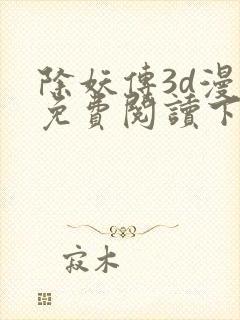 除妖傳3d漫
免費閱讀下
寂木